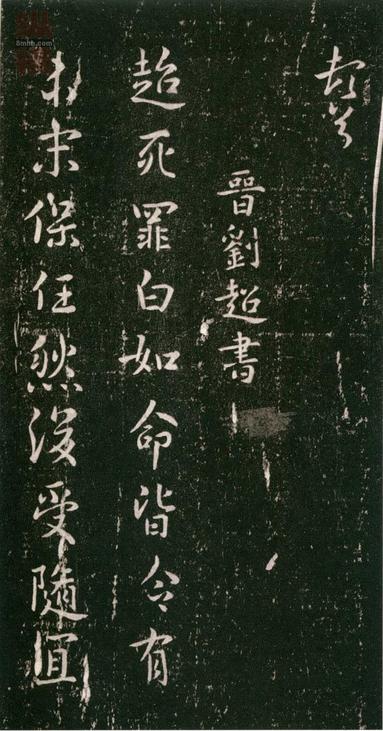 晉劉超書
超死罪白如命皆令有
本末保任然後受隨宜